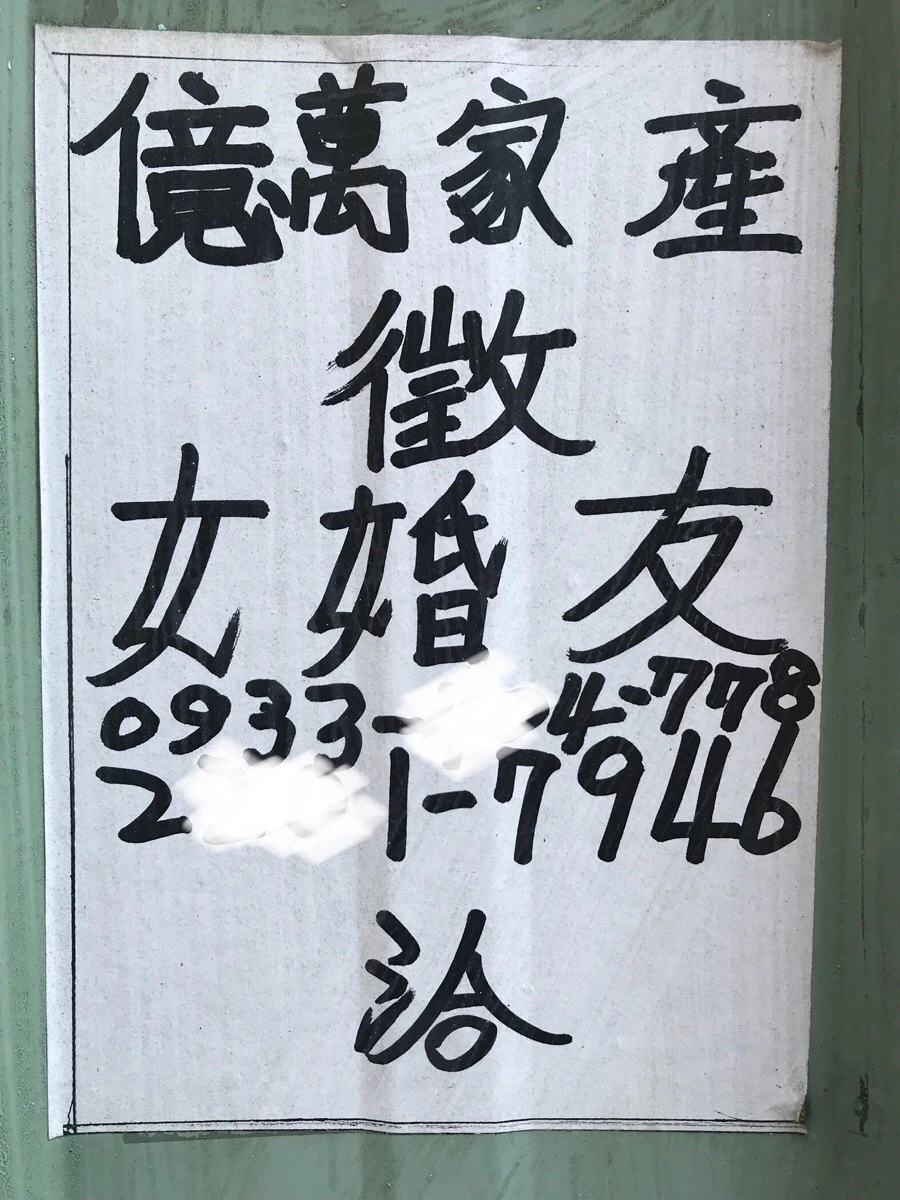 億萬家產
徵
女婚友
0933- 4-778
2 1-7946
洽